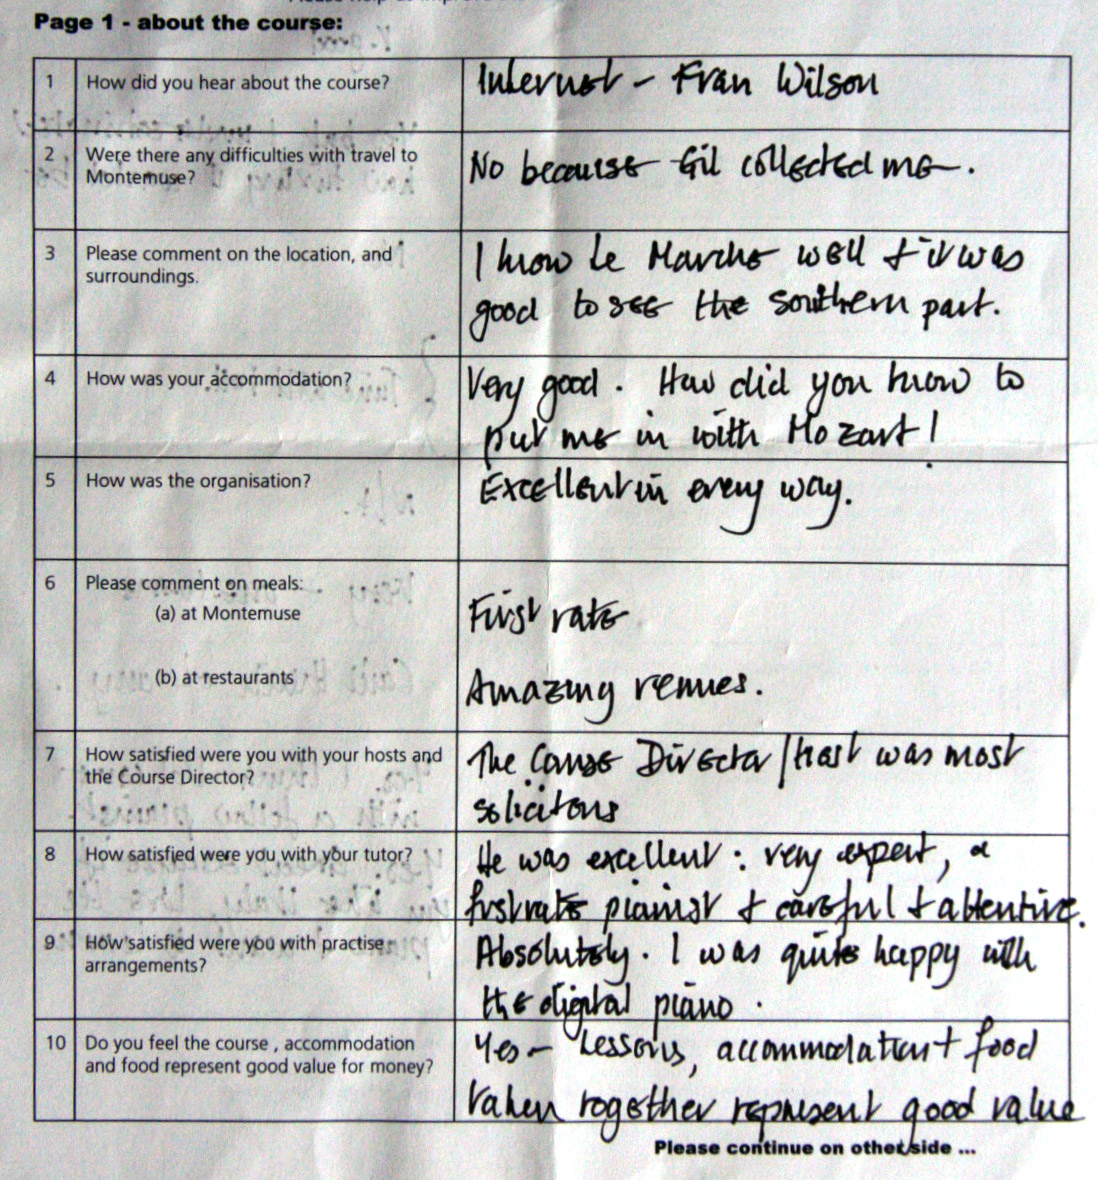 Page 1 - about the course:
1 How did you hear about the course? Internet – Fran Wilson
2 Were there any difficulties with travel to
Montemuse?
No because Gil collected me.
3 Please comment on the location, and
surroundings.
I know Le Marche well + it was
good to see the southern part.
4 How was your accommodation?
Very good. How did you know to
put me in with Mozart!
5 How was the organisation? Excellent in every way.
6 Please comment on meals:
(a) at Montemuse
First rate
(b) at restaurants
Amazing venues.
7 How satisfied were you with your hosts and
the Course Director?
The Course Director/host was most
solicitous
8 How satisfied were you with your tutor?
He was excellent: very expert, a
first rate pianist + careful + attentive.
9 How satisfied were you with practise
arrangements?
Absolutely. I was quite happy with
the digital piano.
10 Do you feel the course , accommodation
and food represent good value for money?
Yes – Lessons, accommodation + food
taken together represent good value
Please continue on other side ...